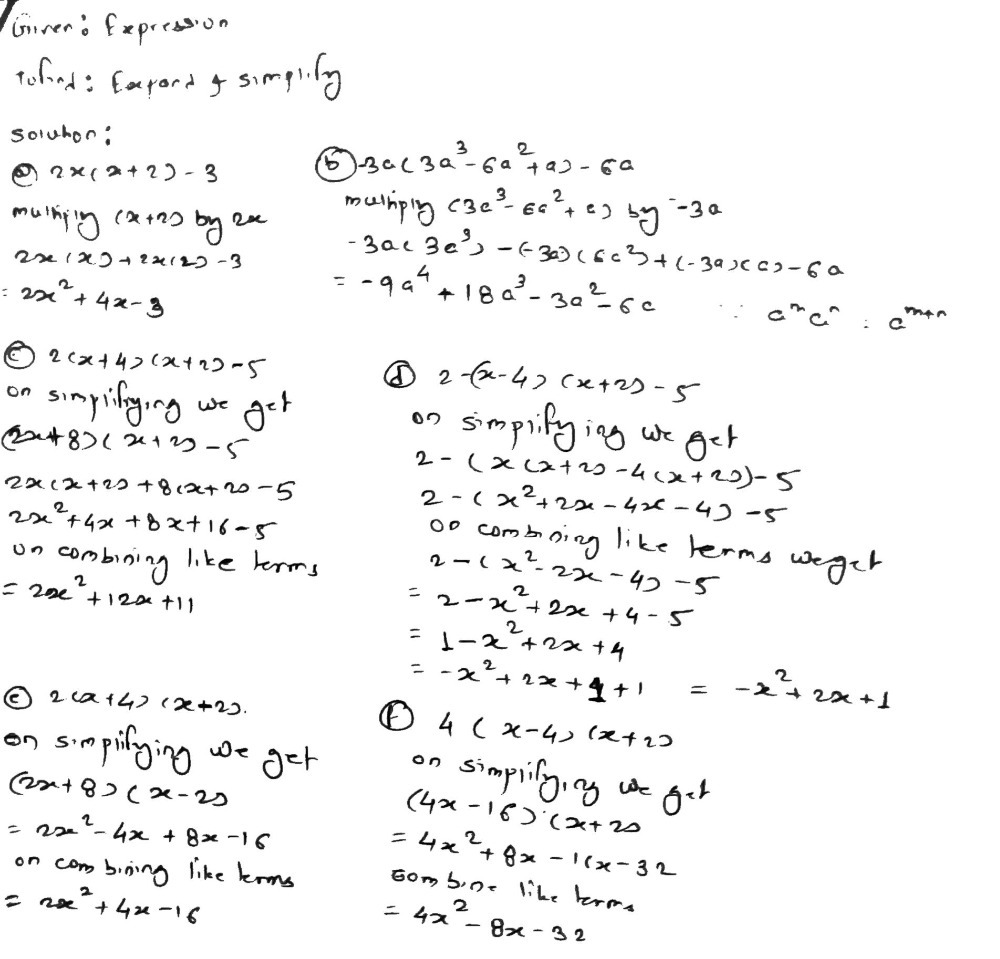 Given: Expression
Tofind: Expand & simplify
Solution:
ⓐ 2x(x+2)-3
multiply (x+2) by 2x
2x(x)+2x(2)-3
= 2x²+4x-3
ⓑ -3a(3a³-6a²+a)-6a
multiply (3a³-6a²+a) by -3a
-3a(3a³)-(-3a)(6a²)+(-3a)(a)-6a
= -9a⁴+18a³-3a²-6a ∵ aᵐaⁿ = aᵐ⁺ⁿ
ⓒ 2(x+4)(x+2)-5
on simplifying we get
(2x+8)(x+2)-5
2x(x+2)+8(x+2)-5
2x²+4x+8x+16-5
on combining like terms
= 2x²+12x+11
ⓓ 2-(x-4)(x+2)-5
on simplifying we get
2-(x(x+2)-4(x+2))-5
2-(x²+2x-4x-4)-5
on combining like terms we get
2-(x²-2x-4)-5
= 2-x²+2x+4-5
= 1-x²+2x+4
= -x²+2x+1+1 = -x²+2x+1
ⓔ 2(x+4)(x+2).
on simplifying we get
(2x+8)(x-2)
= 2x²-4x+8x-16
on combining like terms
= 2x²+4x-16
ⓕ 4(x-4)(x+2)
on simplifying we get
(4x-16)(x+2)
= 4x²+8x-16x-32
combine like terms
= 4x²-8x-32